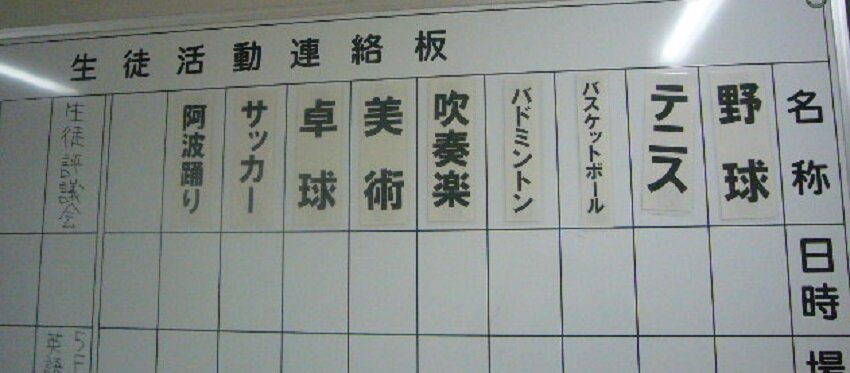 生徒活動連絡板
名称
野球
テニス
バスケットボール
バドミントン
吹奏楽
美術
卓球
サッカー
阿波踊り
生徒評議会
日時
場
5F
英語